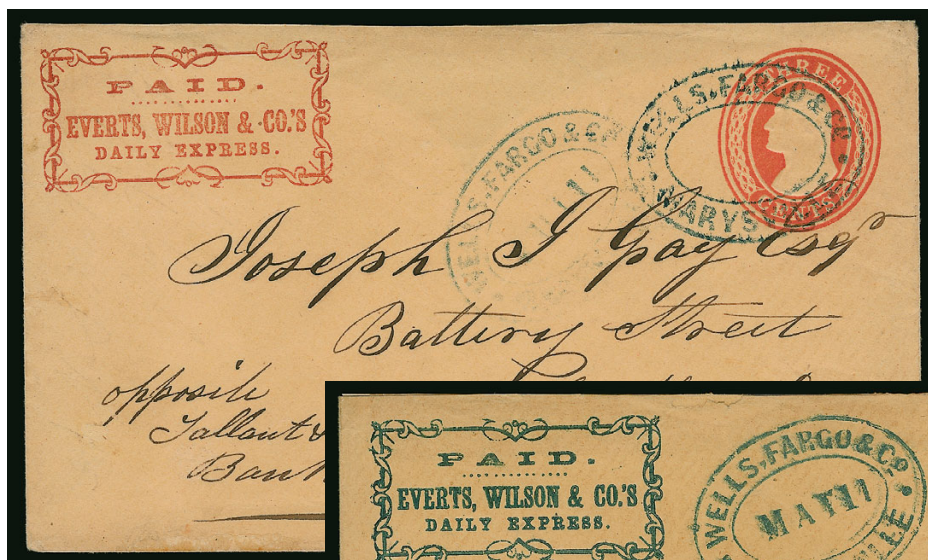 PAID.
EVERTS, WILSON & CO.'S
DAILY EXPRESS.
WELLS, FARGO & CO.
WELLS, FARGO & CO.
MARYS
THREE
CENTS
Joseph I Gay Esqr
Battery Street
opposite
Tallant &
Bank
PAID.
EVERTS, WILSON & CO.'S
DAILY EXPRESS.
WELLS, FARGO & Co.
MAY 11
LLE